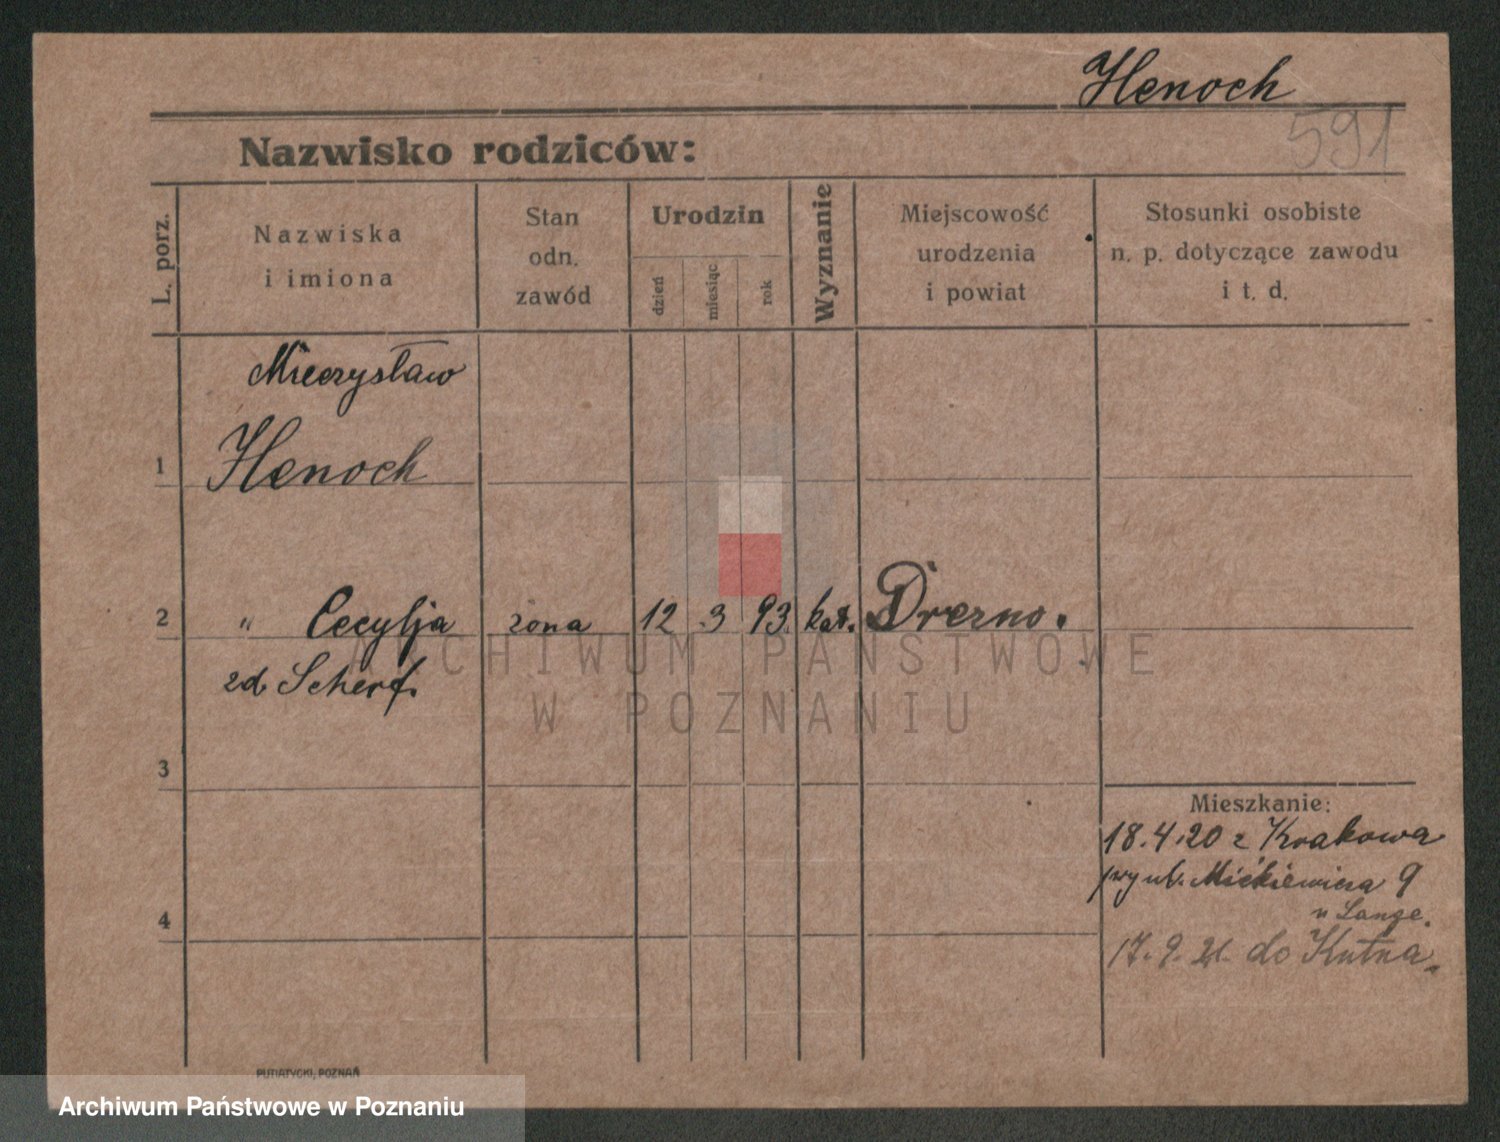 Henoch
591
Nazwisko rodziców:
L. porz.
Nazwiska
i imiona
Stan
odn.
zawód
Urodzin
dzień
miesiąc
rok
Wyznanie
Miejscowość
urodzenia
i powiat
Stosunki osobiste
n. p. dotyczące zawodu
i t. d.
Mieczysław
1 Henoch
2 " Cecylja żona 12 3 93. kat. Drezno.
zd. Scherf.
3
Mieszkanie:
18.4.20 z Krakowa
przy ul. Mickiewicza 9
u Lange.
4
17.9.21. do Kutna.
PUTIATYCKI, POZNAŃ
ARCHIWUM PAŃSTWOWE
W POZNANIU
Archiwum Państwowe w Poznaniu